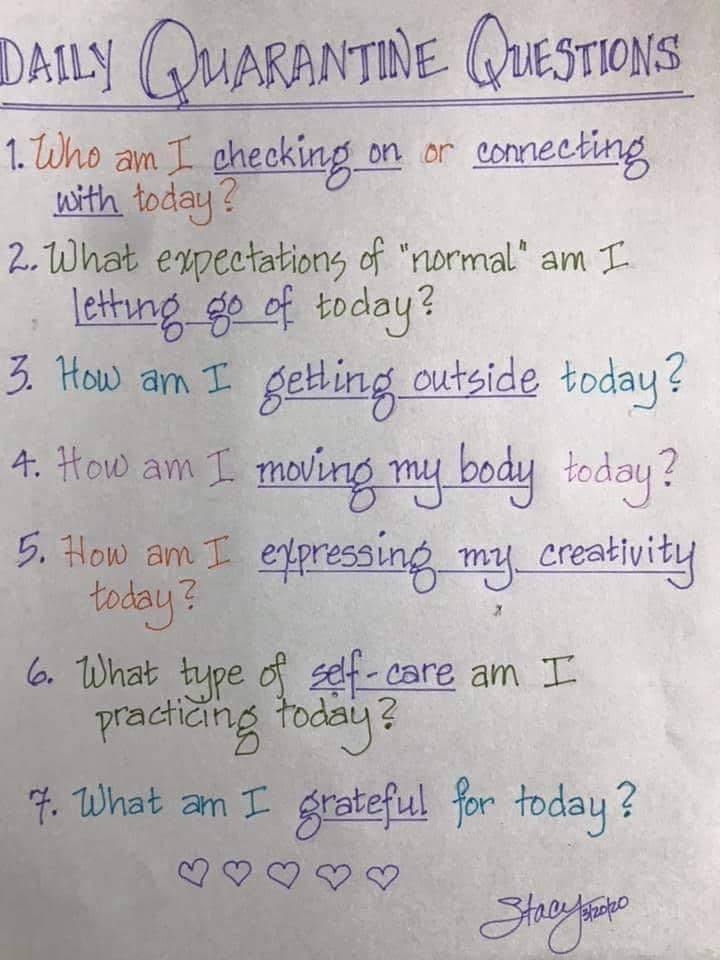 DAILY QUARANTINE QUESTIONS
1. Who am I checking on or connecting
with today?
2. What expectations of "normal" am I
letting go of today?
3. How am I getting outside today?
4. How am I moving my body today?
5. How am I expressing my creativity
today?
6. What type of self-care am I
practicing today?
7. What am I grateful for today?
♡ ♡ ♡ ♡ ♡
Stacy 3/20/20